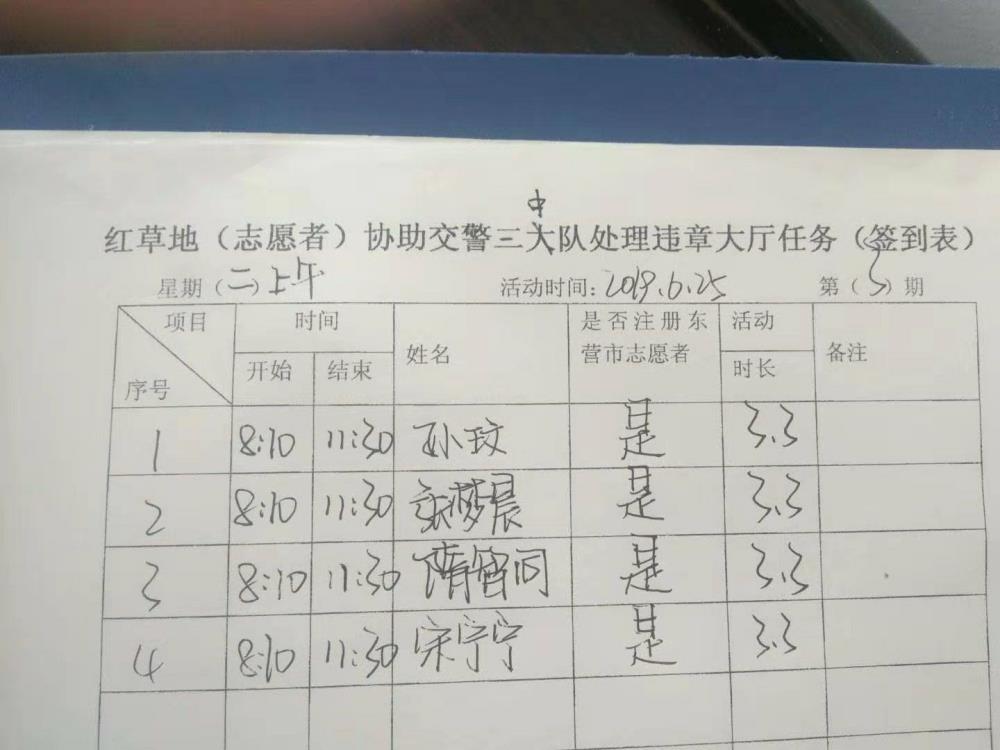 中
红草地（志愿者）协助交警三大队处理违章大厅任务（签到表）
星期（二）上午 活动时间：2019.6.25 第（3）期
项目 时间 姓名 是否注册东营市志愿者 活动时长 备注
序号 开始 结束
1 8:10 11:30 孙玟 是 3.3
2 8:10 11:30 张梦晨 是 3.3
3 8:10 11:30 隋 同 是 3.3
4 8:10 11:30 宋宁宁 是 3.3